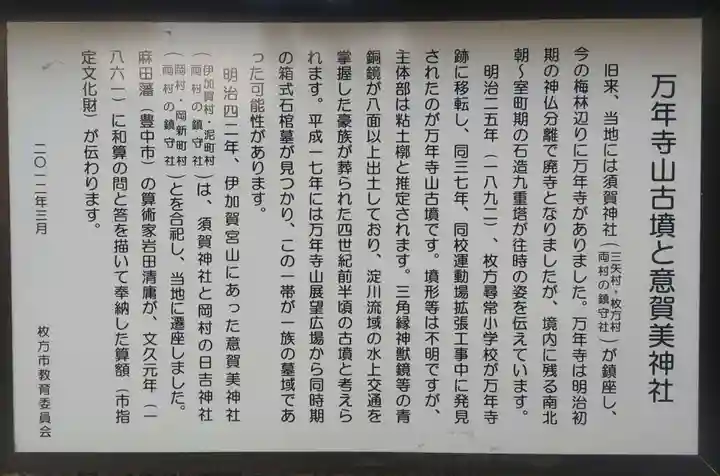 万年寺山古墳と意賀美神社
旧来、当地には須賀神社（三矢村・枚方村両村の鎮守社）が鎮座し、
今の梅林辺りに万年寺がありました。万年寺は明治初
期の神仏分離で廃寺となりましたが、境内に残る南北
朝～室町期の石造九重塔が往時の姿を伝えています。
明治二五年（一八九二）、枚方尋常小学校が万年寺
跡に移転し、同三七年、同校運動場拡張工事中に発見
されたのが万年寺山古墳です。墳形等は不明ですが、
主体部は粘土槨と推定されます。三角縁神獣鏡等の青
銅鏡が八面以上出土しており、淀川流域の水上交通を
掌握した豪族が葬られた四世紀前半頃の古墳と考えら
れます。平成一七年には万年寺山展望広場から同時期
の箱式石棺墓が見つかり、この一帯が一族の墓域であ
った可能性があります。
明治四二年、伊加賀宮山にあった意賀美神社
（伊加賀村・泥町村両村の鎮守社）は、須賀神社と岡村の日吉神社
（岡村・岡新町村両村の鎮守社）とを合祀し、当地に遷座しました。
麻田藩（豊中市）の算術家岩田清庸が、文久元年（一
八六一）に和算の問と答を描いて奉納した算額（市指
定文化財）が伝わります。
二〇一二年三月
枚方市教育委員会